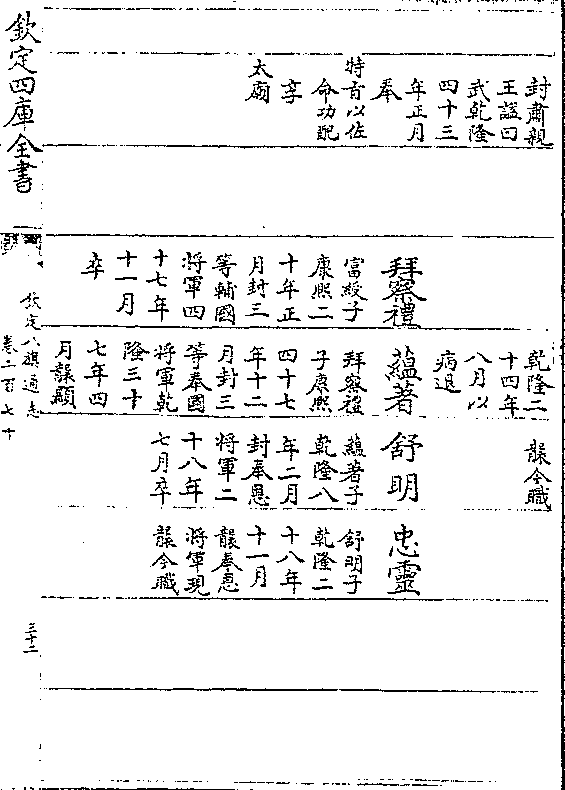 封肅親
王諡曰
武乾隆
四十三
年正月
奉
特旨以佐
命功配
享
太廟
拜察禮
富綬子
康熙二
十年正
月封三
等輔國
將軍四
十七年
十一月
卒
乾隆二
十四年
八月以
病退
蘊著
拜察禮
子康熙
四十七
年十二
月封三
等奉國
將軍乾
隆三十
七年四
月襲顯
襲今職
舒明
蘊著子
乾隆八
年二月
封奉恩
將軍二
十八年
七月卒
忠靈
舒明子
乾隆二
十八年
十一月
襲奉恩
將軍現
襲今職
欽定四庫全書
欽定八旗通志
卷二百七十
三十二